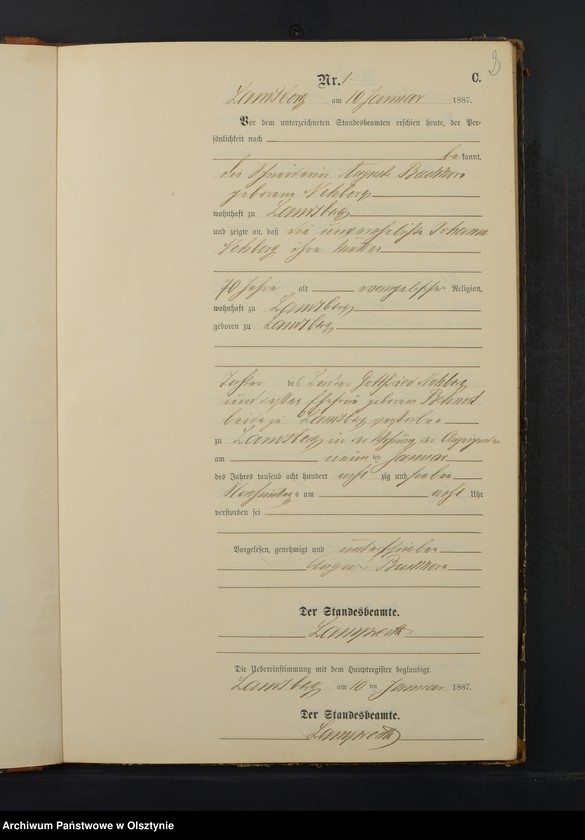 Nr. 1. C.
Landsberg am 10 Januar 1887.
Vor dem unterzeichneten Standesbeamten erschien heute, der Per-
sönlichkeit nach
bekannt,
die August
geborene Nehberg
wohnhaft zu Landsberg
und zeigte an, daß die unverehelichte Johanna
Nehberg ihre Mutter
70 Jahre alt evangelischer Religion,
wohnhaft zu Landsberg
geboren zu Landsberg
Tochter des Gottfried Nehberg
und dessen Ehefrau geborene
beide zu Landsberg verstorben
zu Landsberg in der Wohnung der Anzeigenden
am neun ten Januar
des Jahres tausend acht hundert acht zig und sieben
Vormittags um acht Uhr
verstorben sei
Vorgelesen, genehmigt und unterschrieben
Der Standesbeamte.
Lamprecht
Die Uebereinstimmung mit dem Hauptregister beglaubigt.
Landsberg am 10 ten Januar 1887.
Der Standesbeamte.
Lamprecht
Archiwum Państwowe w Olsztynie